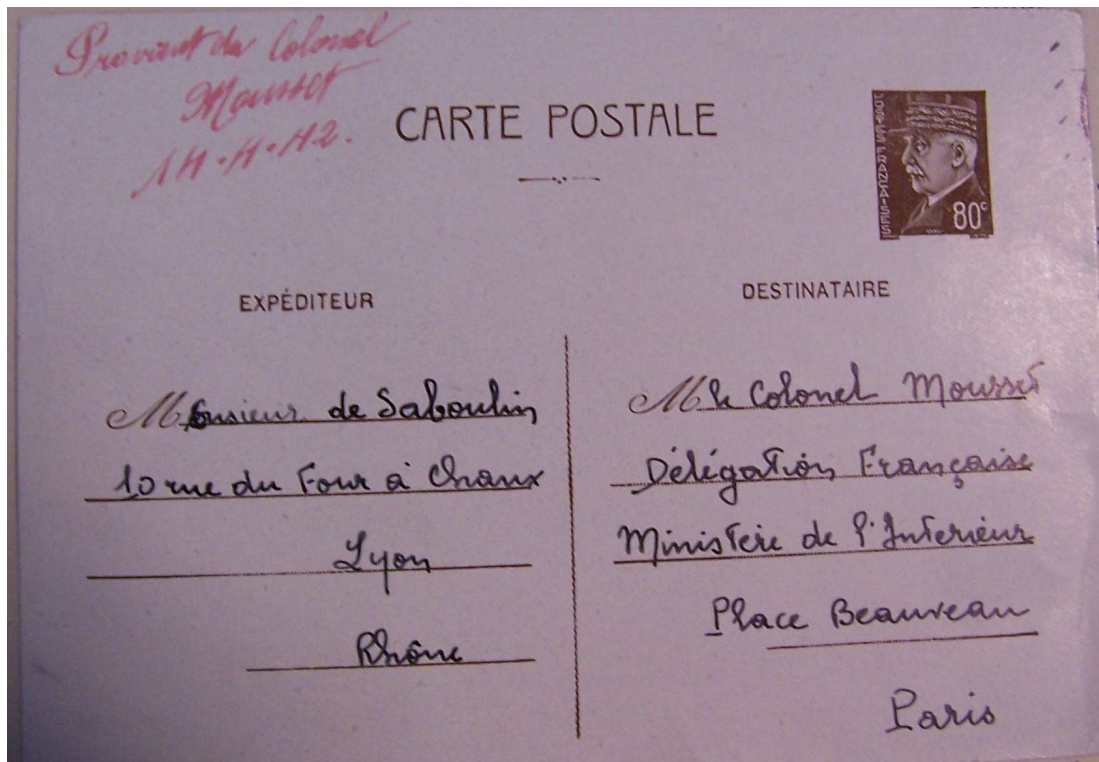 Provient du Colonel
Mousset
14.4.42.
CARTE POSTALE
POSTES FRANÇAISES
80c
EXPÉDITEUR
Monsieur de Saboulin
10 rue du Four à Chaux
Lyon
Rhône
DESTINATAIRE
M le Colonel Mousset
Délégation Française
Ministère de l'Interieur
Place Beauveau
Paris